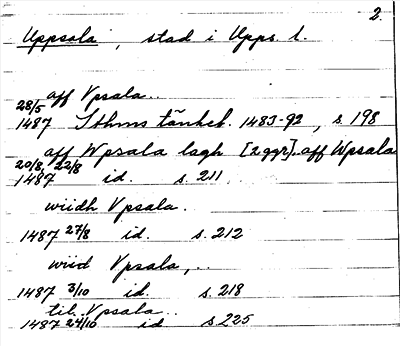 2.
Uppsala, stad i Upps. l.
aff Vpsala..
28/5
1487 Sthms tänkeb. 1483-92, s. 198
aff Wpsala lagh [2 ggr]. aff Wpsala
20/8, 22/8
1487 id. s. 211
wiidh Vpsala.
1487 27/8 id. s. 212
wiid Vpsala,..
1487 3/10 id. s. 218
til Vpsala..
1487 24/10 id s 225